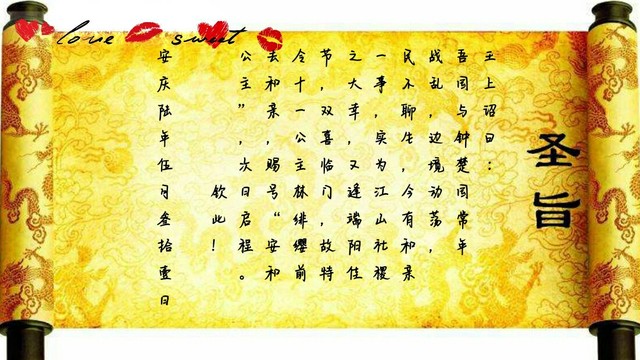 love sweet
圣旨
主上诏曰：
吾国与钟楚国常年
战乱，边境动荡，
民不聊生，今有和亲
一事，实为江山社稷
之大幸，又逢端阳佳
节，双喜临门，故特
令十一公主林绯缨前
去和亲，赐号“安和
公主”，次日启程。
钦此！
安庆陆年伍月叁拾壹日